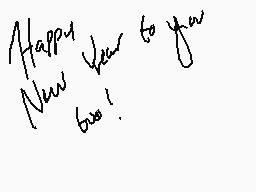 Happy
New Year to you
too!